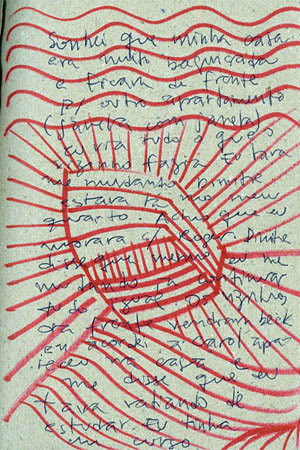 Sonhei que minha casa
era muito bagunçada
e ficava de frente
p/ outro apartamento
(janela com janela)
eu via tudo o que os
vizinho fazia. Eu tava
me mudando. Dimitre
estava lá no meu
quarto. Achu que eu
morara c/ Roger. Dimitre
disse que mesmo eu me
mudando ia continuar
tudo igual. Os vizinhos
da frente venderam beck
eu acordei a Carol apa-
receu na casa e
me disse que eu
tava vatiando de
estudar. Eu tinha
um curso